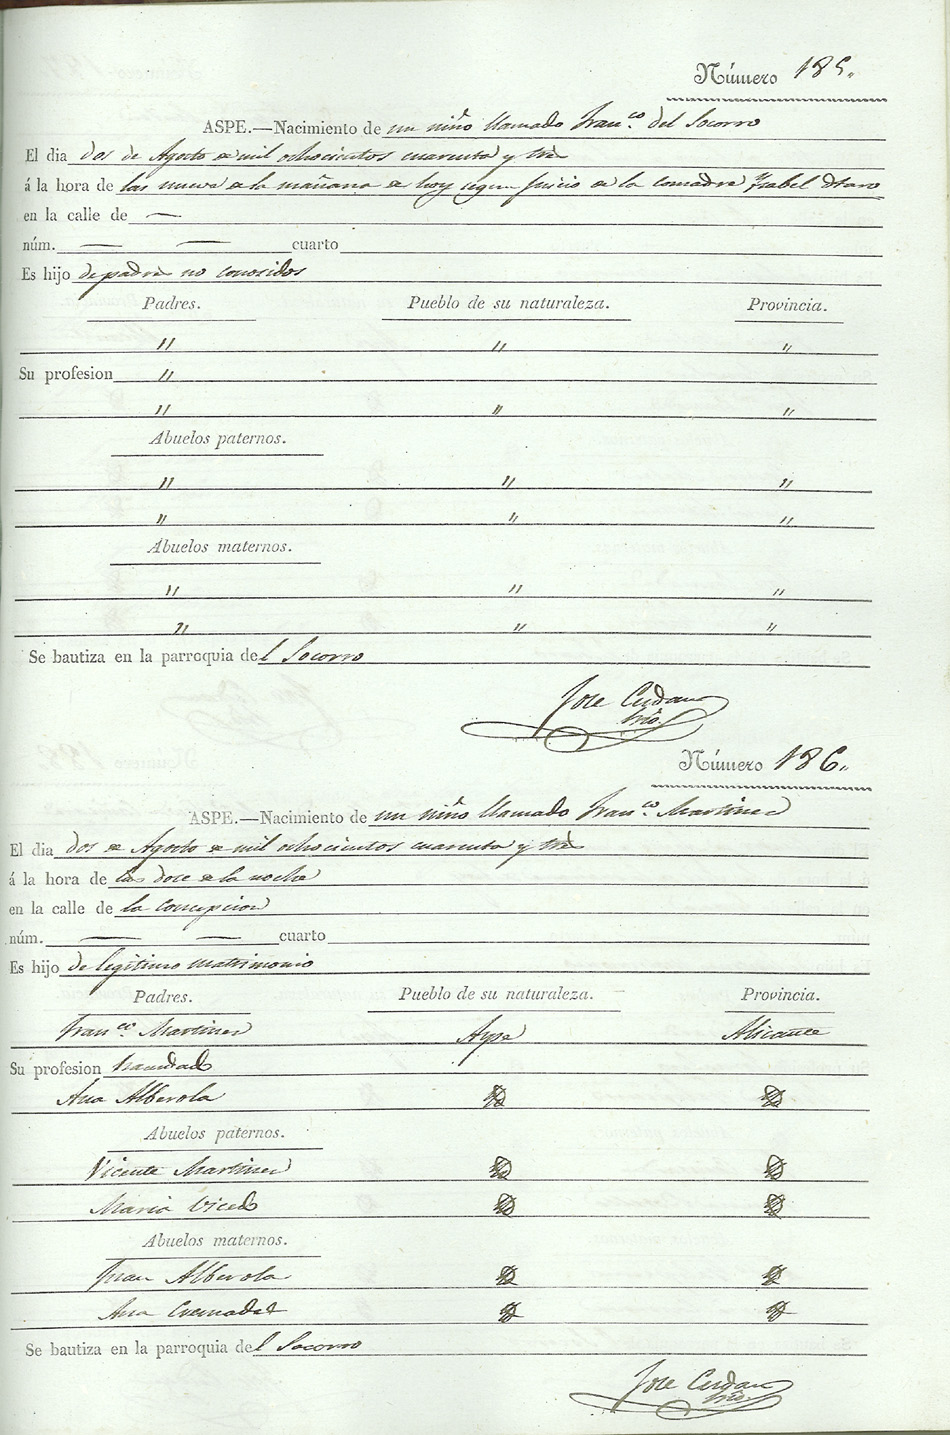 Número 185.
ASPE.—Nacimiento de un niño llamado Franco. del Socorro
El dia dos de Agosto de mil ochocientos cuarenta y tres
á la hora de las nueve de la mañana de hoy segun juicio de la comadre Ysabel
en la calle de —
núm. — — cuarto
Es hijo de padres no conosidos
Padres. Pueblo de su naturaleza. Provincia.
" " "
Su profesion "
" " "
Abuelos paternos.
" " "
" " "
Abuelos maternos.
" " "
" " "
Se bautiza en la parroquia del Socorro
Jose Cerdan
Srio.
Número 186.
ASPE.—Nacimiento de un niño llamado Franco. Martinez
El dia dos de Agosto de mil ochocientos cuarenta y tres
á la hora de las doce de la noche
en la calle de la Concepcion
núm. — — cuarto
Es hijo de legitimo matrimonio
Padres. Pueblo de su naturaleza. Provincia.
Franco. Martinez Aspe Alicante
Su profesion
Ana Alberola
Abuelos paternos.
Vicente Martinez
Maria Vicedo
Abuelos maternos.
Juan Alberola
Ana Cremades
Se bautiza en la parroquia del Socorro
Jose Cerdan
Srio.